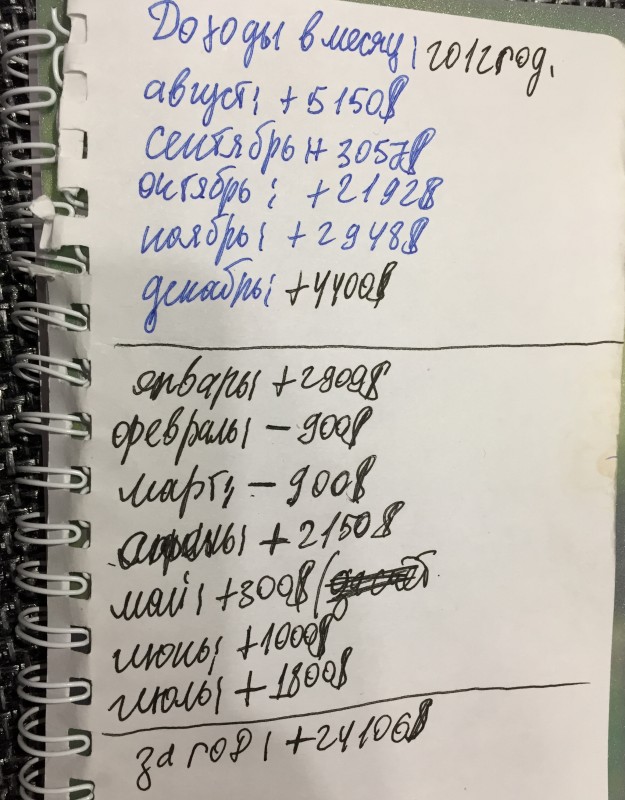 Доходы в месяц: 2012 год.
август: +5150$
сентябрь: +3057$
октябрь: +2192$
ноябрь: +2948$
декабрь: +4400$
январь: +2909$
февраль: -900$
март: -900$
апрель: +2150$
май: +300$ (
июнь: +1000$
июль: +1800$
за год: +24106$